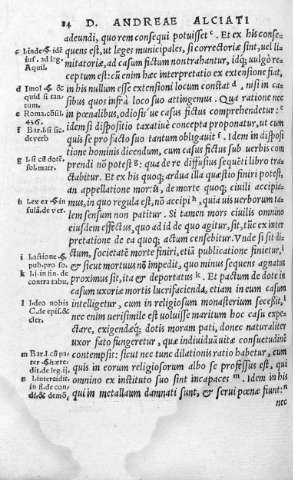 84 D. ANDREAE ALCIATI
adeundi, quo rem consequi potuisset. Et ex his conse-
quens est, ut leges municipales, si correctoriæ sint, uel li-
mitatoriæ, ad casum fictum non trahantur, idq; uulgò re-
ceptum est: cũ enim hæc interpretatio ex extensione fiat,
in his nullum esse extensioni locum constat d, nisi in ca-
sibus quos infrà loco suo attingemus. Qua ratione nec
in pœnalibus, odiosis' ue casus fictus comprehenditur:
idem si dispositio taxatiuè concepta proponatur, ut cum
quis se pro facto suo tantum obligauit f. Idem in disposi
tione hominis dicendum, cum casus fictus sub uerbis com
prendi nõ potest g: qua de re diffusius sequẽti libro tra-
ctabitur. Et ex his quoq; ardua illa quæstio finiri potest,
an appellatione mortis, de morte quoq; ciuili accipia-
mus, in quo regula est, nõ accipi h, quia uis uerborum ta-
lem sensum non patitur. Si tamen mors ciuilis omnino
eiusdem effectus, quo ad id de quo agitur, sit, tũc ex inter
pretatione de ea quoq; actum censebitur. Vnde si sit di-
ctum, societatẽ morte finiri, etiã publicatione finietur, i
& sicut mortuus nõ impedit, quo minus sequens agnatus
proximus sit, ita & deportatus k. Et pactum de dote in
casum uxoriæ mortis lucrifacienda, etiam in eum casum
intelligetur, cum in religiosum monasterium secessit,
nec enim uerisimile est uoluisse maritum hoc casu expe-
ctare, exigendæq; dotis moram pati, donec naturaliter
uxor fato fungeretur, quæ indiuiduã uitæ consuetudinẽ
contempsit: sicut nec tunc dilationis ratio habetur, cum
quis in eorum religiosorum albo se professus est, qui
omnino ex instituto suo sint incapaces m. Idem in his
qui in metallum damnati sunt, & serui pœnæ fiunt: n
nec
d Imol.
quid si tan-
tum.
436.
i l. actione §.
pub. pro so.
k
contra tabu.
l Ideo nobis